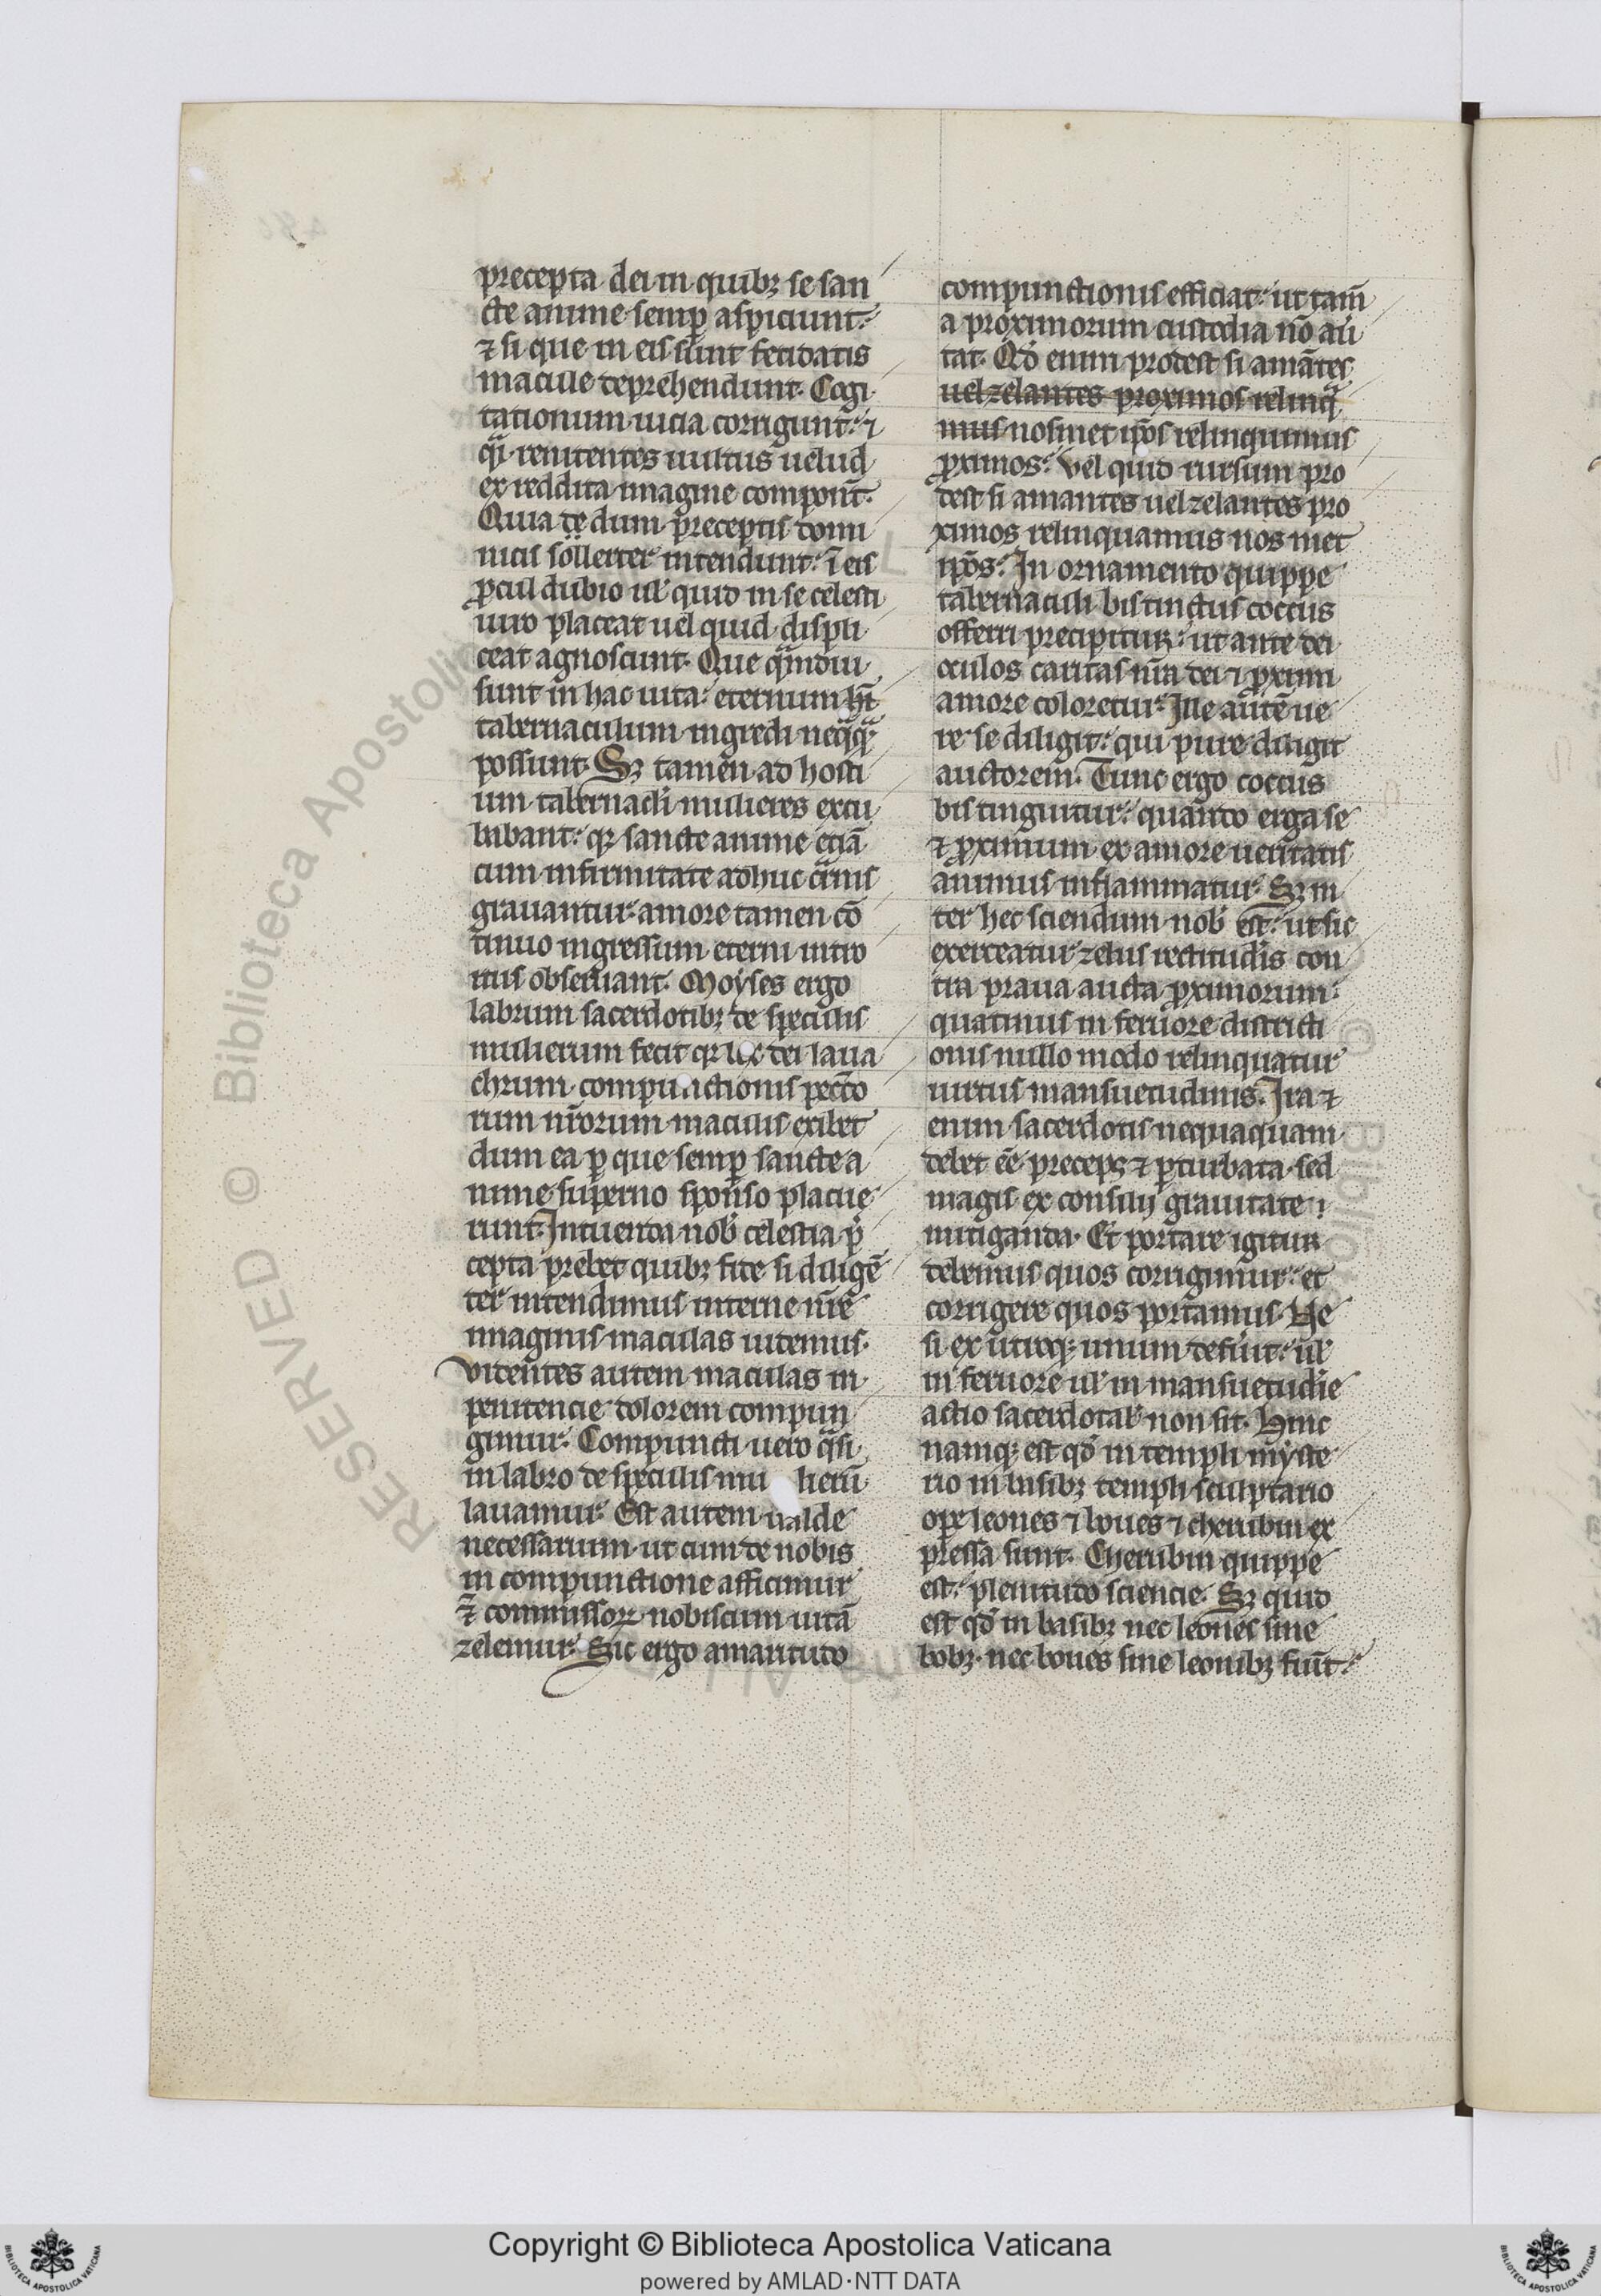 precepta dei in quibꝫ se san
cte anime semꝑ aspiciunt.
⁊ si que in eis sunt feditatis
macule deprehendunt. Cogi
tationum uicia corrigunt. ⁊
qͣi renitentes uultus uelud
ex reddita imagine componūt.
Quia de dum preceptis domi
nicis sollerter intendunt. ī eis
ꝓcul dubio ul̓ quid in se celesti
uiro placeat uel quid displi
ceat agnoscunt. Que qͣmdiu
sunt in hac uita. eternum
tabernaculum ingredi neqͣqͣꝫ
possunt. Sꝫ tamen ad hosti
um tabernacli mulieres excu
bibant. qꝛ sancte anime etiā
cum infirmitate adhuc carnis
grauantur. amore tamen cō
tinuo ingressum eterni intro
itus obseruant. Moyses ergo
labrum sacerdotibꝫ de speculis
mulierum fecit qꝛ lex dei laua
chrum compunctionis pecc̄to
rum nr̄orum maculis exibet
dum ea ꝑ que semꝑ sancte a
nime superno sponso placue
runt. Intuenda nob̓ celestia p̄
cepta prebet quibꝫ site si diligē
ter intendimus interne nr̄e
imaginis maculas uidemus.
Videntes autem maculas in
penitencie dolorem compun
gimur. Compuncti uero qͣsi
in labro de speculis mu lierū
lauamur. Est autem ualde
necessarium ut cum de nobis
in compunctione afficimur
⁊ commissoꝝ nobiscum uitā
zelemur. Sic ergo amaritudo
compunctionis efficiat. ut tam̄
a proximorum custodia nō au
tat. Qd̓ enim prodest si amātes
uel zelantes proximos relinqͣ
mus nosmet ip̄os relinquimus
ꝓximos. Vel quid rursum pro
dest si amantes uel zelantes pro
ximos relinquamus nos met
ip̄os. In ornamento quippe
tabernaculi bis tinctus coccus
offerri precipitur. ut ante dei
oculos caritas nr̄a dei ⁊ ꝓximi
amore coloretur. Ille autē ue
re se diligit. qui pure diligit
auctorem. Tunc ergo coccus
bis tinguitur. quando erga se
⁊ ꝓximum ex amore ueritatis
animus inflammatur. Sꝫ in
ter hec sciendum nob̓ est. ut sic
exerceatur zelus rectitudīs con
tra praua aucta ꝓximorum.
quatinus in feruore districti
onis nullo modo relinquatur
uirtus mansuetudinis. Ira ⁊
enim sacerdotis nequaquam
debet eē preceps ⁊ ꝑturbata. sed
magis ex consilij grauitate
mitiganda. Et portare igitur
debemus quos corrigimus. et
corrigere quos portamus. Ne
si ex utroqꝫ unum defuit. ul̓
in feruore ul̓ in mansuetudīe
actio sacerdotal̓ non sit. Hinc
namqꝫ est qd̓ in templi myste
rio in basibꝫ templi sculptario
oꝑe leones ⁊ boues ⁊ cherubin ex
pressa sunt. Cherubin quippe
est. plenitudo sciencie. Sꝫ quid
est qd̓ in basibꝫ nec leones sine
bobꝫ. nec boues sine leonibꝫ fiūt.
RESERVED © Biblioteca Apostolica
© Biblio
Copyright © Biblioteca Apostolica Vaticana
powered by AMLAD·NTT DATA
BIBLIOTECA APOSTOLICA VATICANA
BIBLIOTECA APOSTOLICA VATICANA